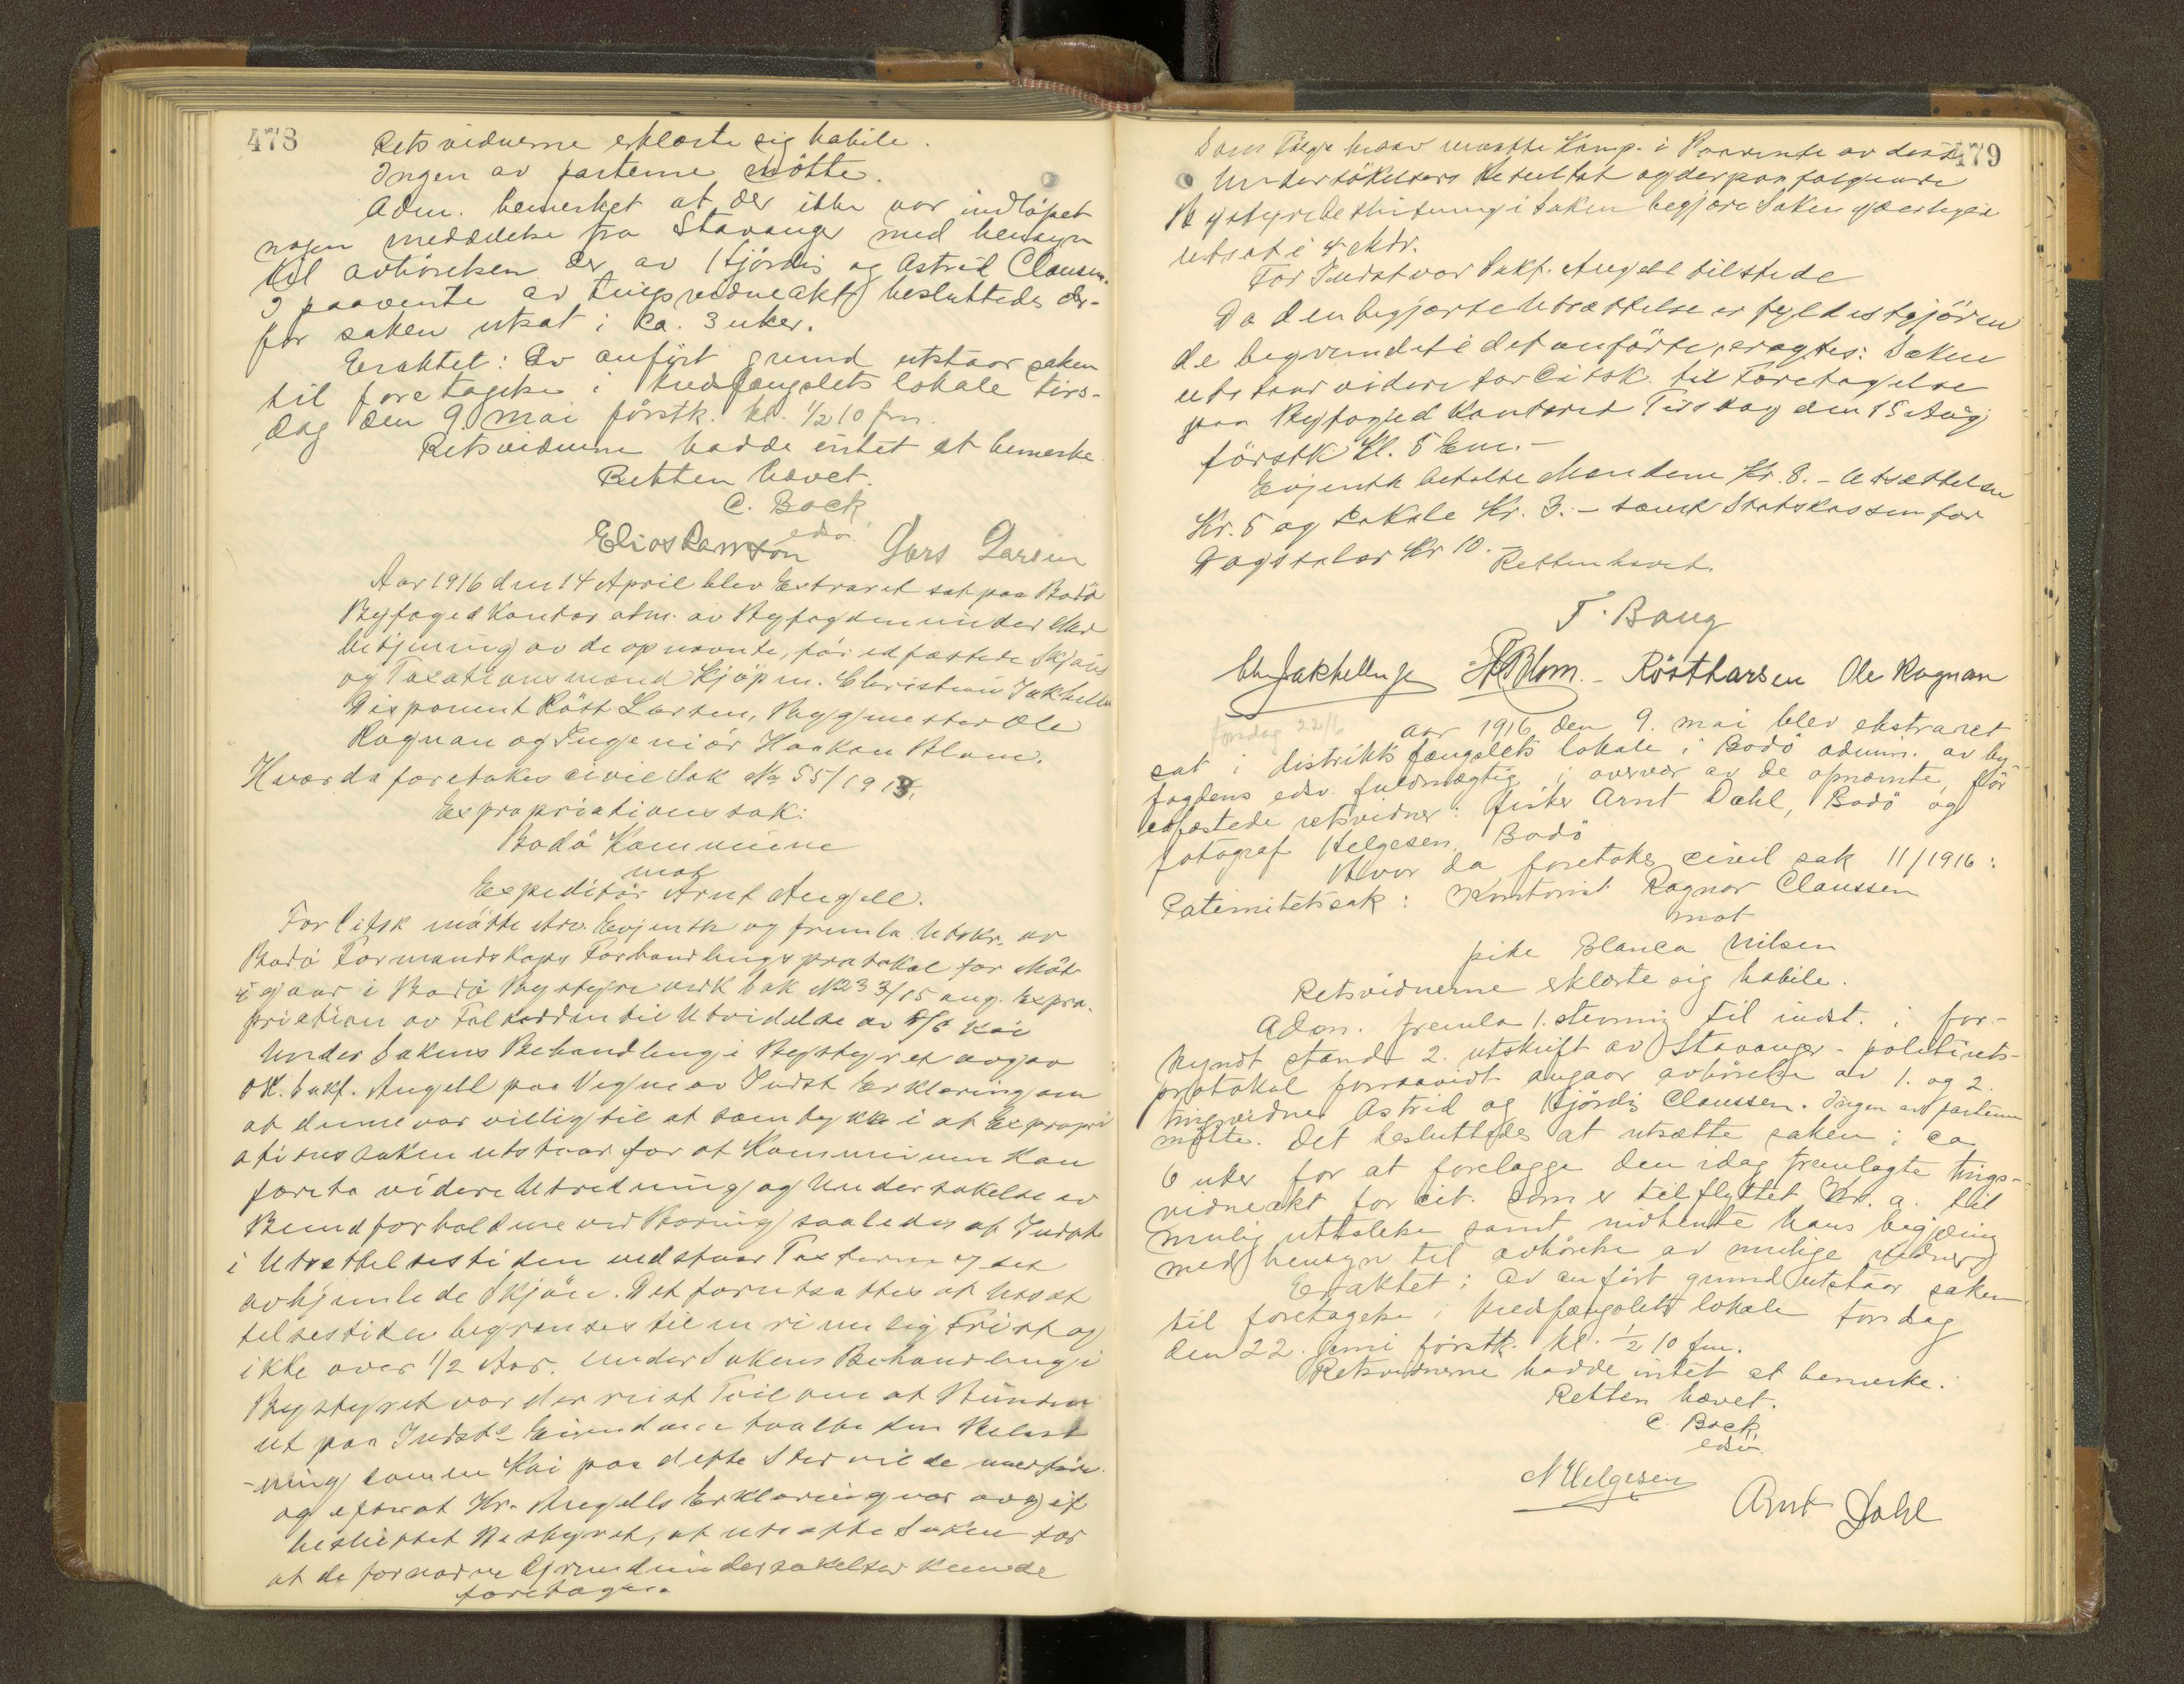 478
Retsvidnerne erklærte sig habile.
Ingen av parterne møtte.
Adm. bemerket at der ikke var indløpet
nogen meddelelse fra Stavanger med hensyn
til avhørelsen der av Hjørdis og Astrid Claussen.
I paavente av tingsvidneakt besluttedes der-
for saken utsat i ca. 3 uker.
Eraktet: Av anført grund utstaar saken
til foretagelse i kredsfængslets lokale tirs-
dag den 9. mai førstk. kl. 1/2 10 fm.
Retsvidnerne hadde intet at bemerke.
Retten hævet.
C. Bock
edsv.
Elias Larsson Lars Larsen
Aar 1916 den 14 April blev Extraret sat paa Bodø
Byfogedkontor adm. av Byfogden under Med
betjening av de opnævnte, før edfæstede Skjøns
og Taxationsmænd Kjøpm. Christian Jakhelln
Disponent Røst Larsen, Byggmester Ole
Rognan og Ingeniør Haakon Blom.
Hvorda foretokes civil Sak No 55/1913.
Expropriationssak:
Bodø Kommune
mot
Expeditør Arnt Angell.
For Citsk møtte Adv. Evjenth og fremla Utskr. av
Bodø Formandskaps Forhandlingsprotokol for Møte
igaar i Bodø Bystyre vedk Sak No 233/15 ang. Expro-
priation av til Utvidelse av D/S Kai
Under Sakens Behandling i Bystyret avgav
O.R. Sakf. Angell paa Vegne av Indst Erklæring om
at denne var villig til at samtykke i at Expropri
ationssaken utstaar for at Kommunen kan
foreta videre Utredning og Undersøkelse av
Bundforholdene ved Boring saaledes at Indst
i Utsættelsestiden vedstaar Taxterne og det
avhjemlede Skjøn. Det forutsættes at Utsæt
telsestiden begrænses til en rimelig Frist og
ikke over 1/2 Aar. Under Sakens Behandling i
Bystyret var der reist Tvil om at Bunden
ut paa Indsts Eiendom taalte den Belast
-ning som en Kai paa dette Sted vilde medføre
og efterat Hr. Angells Erklæring var avgit
besluttet Bystyret, at utsætte Saken for
at de fornødne Grundundersøkelser kunde
foretages.
479
Som Følge herav maatte Komp. i Paavente av disse
Undersøkelsers Resultat og derpaa følgende
Bystyrebeslutning i Saken begjære Saken yderligere
utsat i 4 Mdr.
For Indst var Sakf. Angell tilstede
Da den begjærte Utsættelse er fyldestgjøren
de begrundet i det anførte, eragtes: Saken
utstaar videre for Citsk. til Foretagelse
paa Byfogedkontoret Tirsdag den 15 Aug
førstk Kl. 5 Em.-
Evjenth betalte Mændene Kr. 8. - Utsættelsen
Kr. 5 og Lokale Kr. 3. - samt Statskassen for
Dagstolor Kr 10.-
Retten hævet.
T. Bang
Chr Jakhelln jr HBlom. - Røst Larsen Ole Rognan
torsdag 22/6
Aar 1916 den 9. mai blev ekstraret
sat i distriktsfængslets lokale i Bodø admin. av by-
fogdens edsv. fuldmægtig i overvær av de opnævnte, før
edfæstede retsvidner: fisker Arnt Dahl, Bodø og
fotograf Helgesen, Bodø
Hvor da foretokes civil sak 11/1916:
Paternitetssak: Kontorist Ragnar Claussen
mot
pike Blanca Nilsen
Retsvidnerne erklærte sig habile.
Adm. fremla 1. stevning til indst. i for-
kyndt stand 2. utskrift av Stavanger - politirets-
protokol forsaavidt angaar avhørelse av 1. og 2.
tingsvidner Astrid og Hjørdis Claussen. Ingen av parterne
møtte. Det besluttedes at utsætte saken i ca
6 uker for at forelægge den idag fremlagte tings-
vidneakt for cit. som er tilflyttet Kr. a. til
mulig uttalelse samt indhente hans begjæring
med hensyn til avhørelse av mulige vidner.
Eraktet: Av anført grund utstaar saken
til foretagelse i kredsfængslets lokale torsdag
den 22. juni førstk. kl. 1/2 10 fm.
Retsvidnerne hadde intet at bemerke.
Retten hævet.
C. Bock
edsv.
N Helgesen
Arnt Dahl